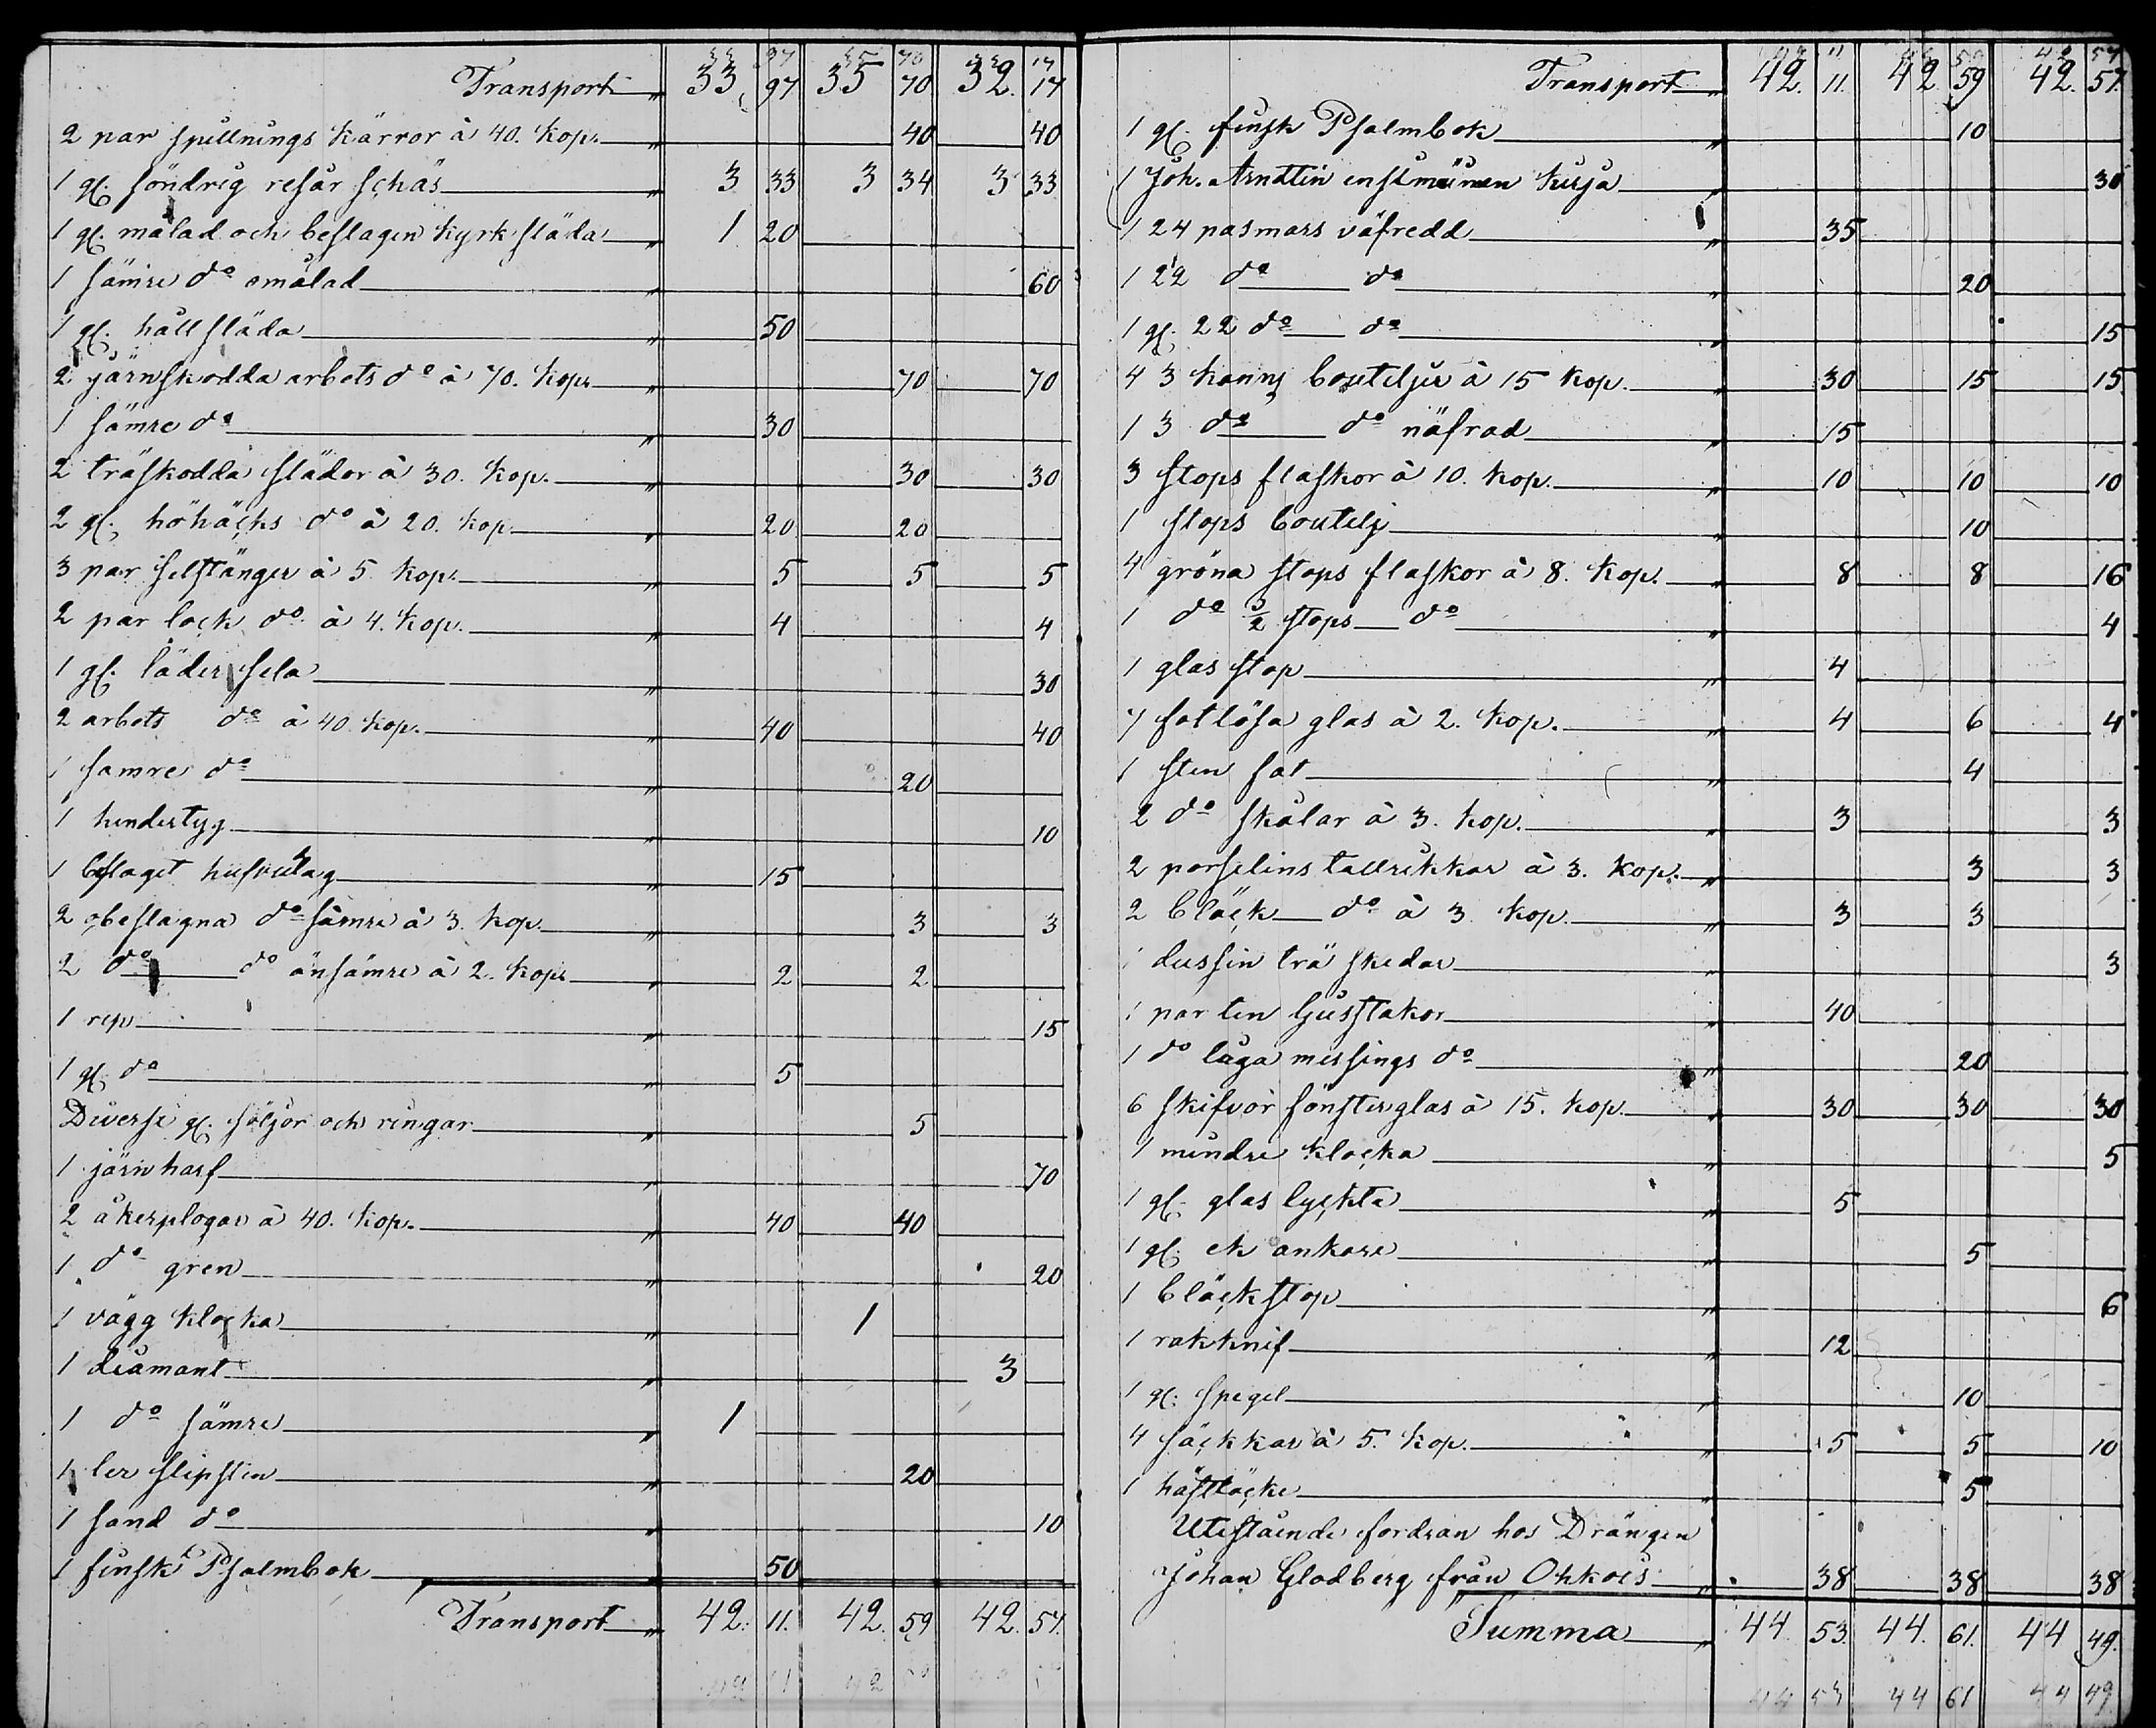 33 97 35 70 32 17
Transport „ 33 97 35 70 32. 17
2 par spillnings kärror à 40. kop. „ 40 40
1 gl. söndrig resår schäs „ 3 33 3 34 3 33
1 gl. målad och beslagen kyrk släda „ 1 20
1 sämre do omålad „ 60
1 gl. håll släda „ 50
2 järnskodda arbets do à 70. kop. „ 70 70
1 sämre do „ 30
2 träskodda slädor à 30. kop. „ 30 30
2 gl. höhäcks do à 20. kop „ 20 20
3 par selstänger à 5 kop. „ 5 5 5
2 par lock do à 4. kop. „ 4 4
1 gl. läder sela „ 30
2 arbets do à 40. kop. „ 40 40
1 samre do „ 20
1 hindertyg „ 10
1 beslaget hufvudlag „ 15
2 obeslagna do sämre à 3. kop. „ 3 3
2 do do änsämre à 2. kop. „ 2 2
1 rep „ 15
1 gl. do „ 5
Diverse gl. söljor och ringar „ 5
1 järn harf „ 70
2 åkerplogar à 40. kop. „ 40 40
1 do gren „ 20
1 vägg klocka „ 1
1 diamant „ 3
1 do sämre „ 1
1 ler slipsten „ 20
1 sand do „ 10
1 finsk Psalmbok „ 50
Transport „ 42. 11. 42. 59 42. 57.
42 11 42 59
42 11 42 59 42 57
Transport „ 42. 11. 42 59 42. 57.
1 gl. finsk Psalmbok „ 10
1 Joh. Arndtin kirja „ 30
1 24 pasmars väfredd „ 35
1 22 do do „ 20
1 gl. 22 do do „ 15
4 3 kanns bouteljer à 15 kop. „ 30 15 15
1 3 do do näfrad „ 15
3 stops flaskor à 10. kop. „ 10 10 10
1 stops boutelj „ 10
4 gröna stops flaskor à 8. kop. „ 8 8 16
1 do 3/2 stops do „ 4
1 glas stop „ 4
7 fotlösa glas à 2. kop. „ 4 6 4
1 sten fat „ 4
2 do skålar à 3. kop. „ 3 3
2 porselins tallrikkar à 3. kop. „ 3 3
2 bläck do à 3 kop. „ 3 3
1 dussin trä skedar „ 3
1 par ten ljusstakor „ 40
1 do låga messings do „ 20
6 skifvor fönsterglas à 15. kop. „ 30 30 30
1 mindre klocka „ 5
1 gl. glas lyckta „ 5
1 gl. ek ankare „ 5
1 bläckstop „ 6
1 rakknif „ 12
1 gl. spegel „ 10
4 säckkar à 5. kop. „ 5 5 10
1 hästtäcke „ 5
Utestående fordran hos Drängen
Johan Glodberg från Ohkois „ 38 38 38
Summa „ 44 53. 44. 61. 44 49.
44 53 44 61 44 49